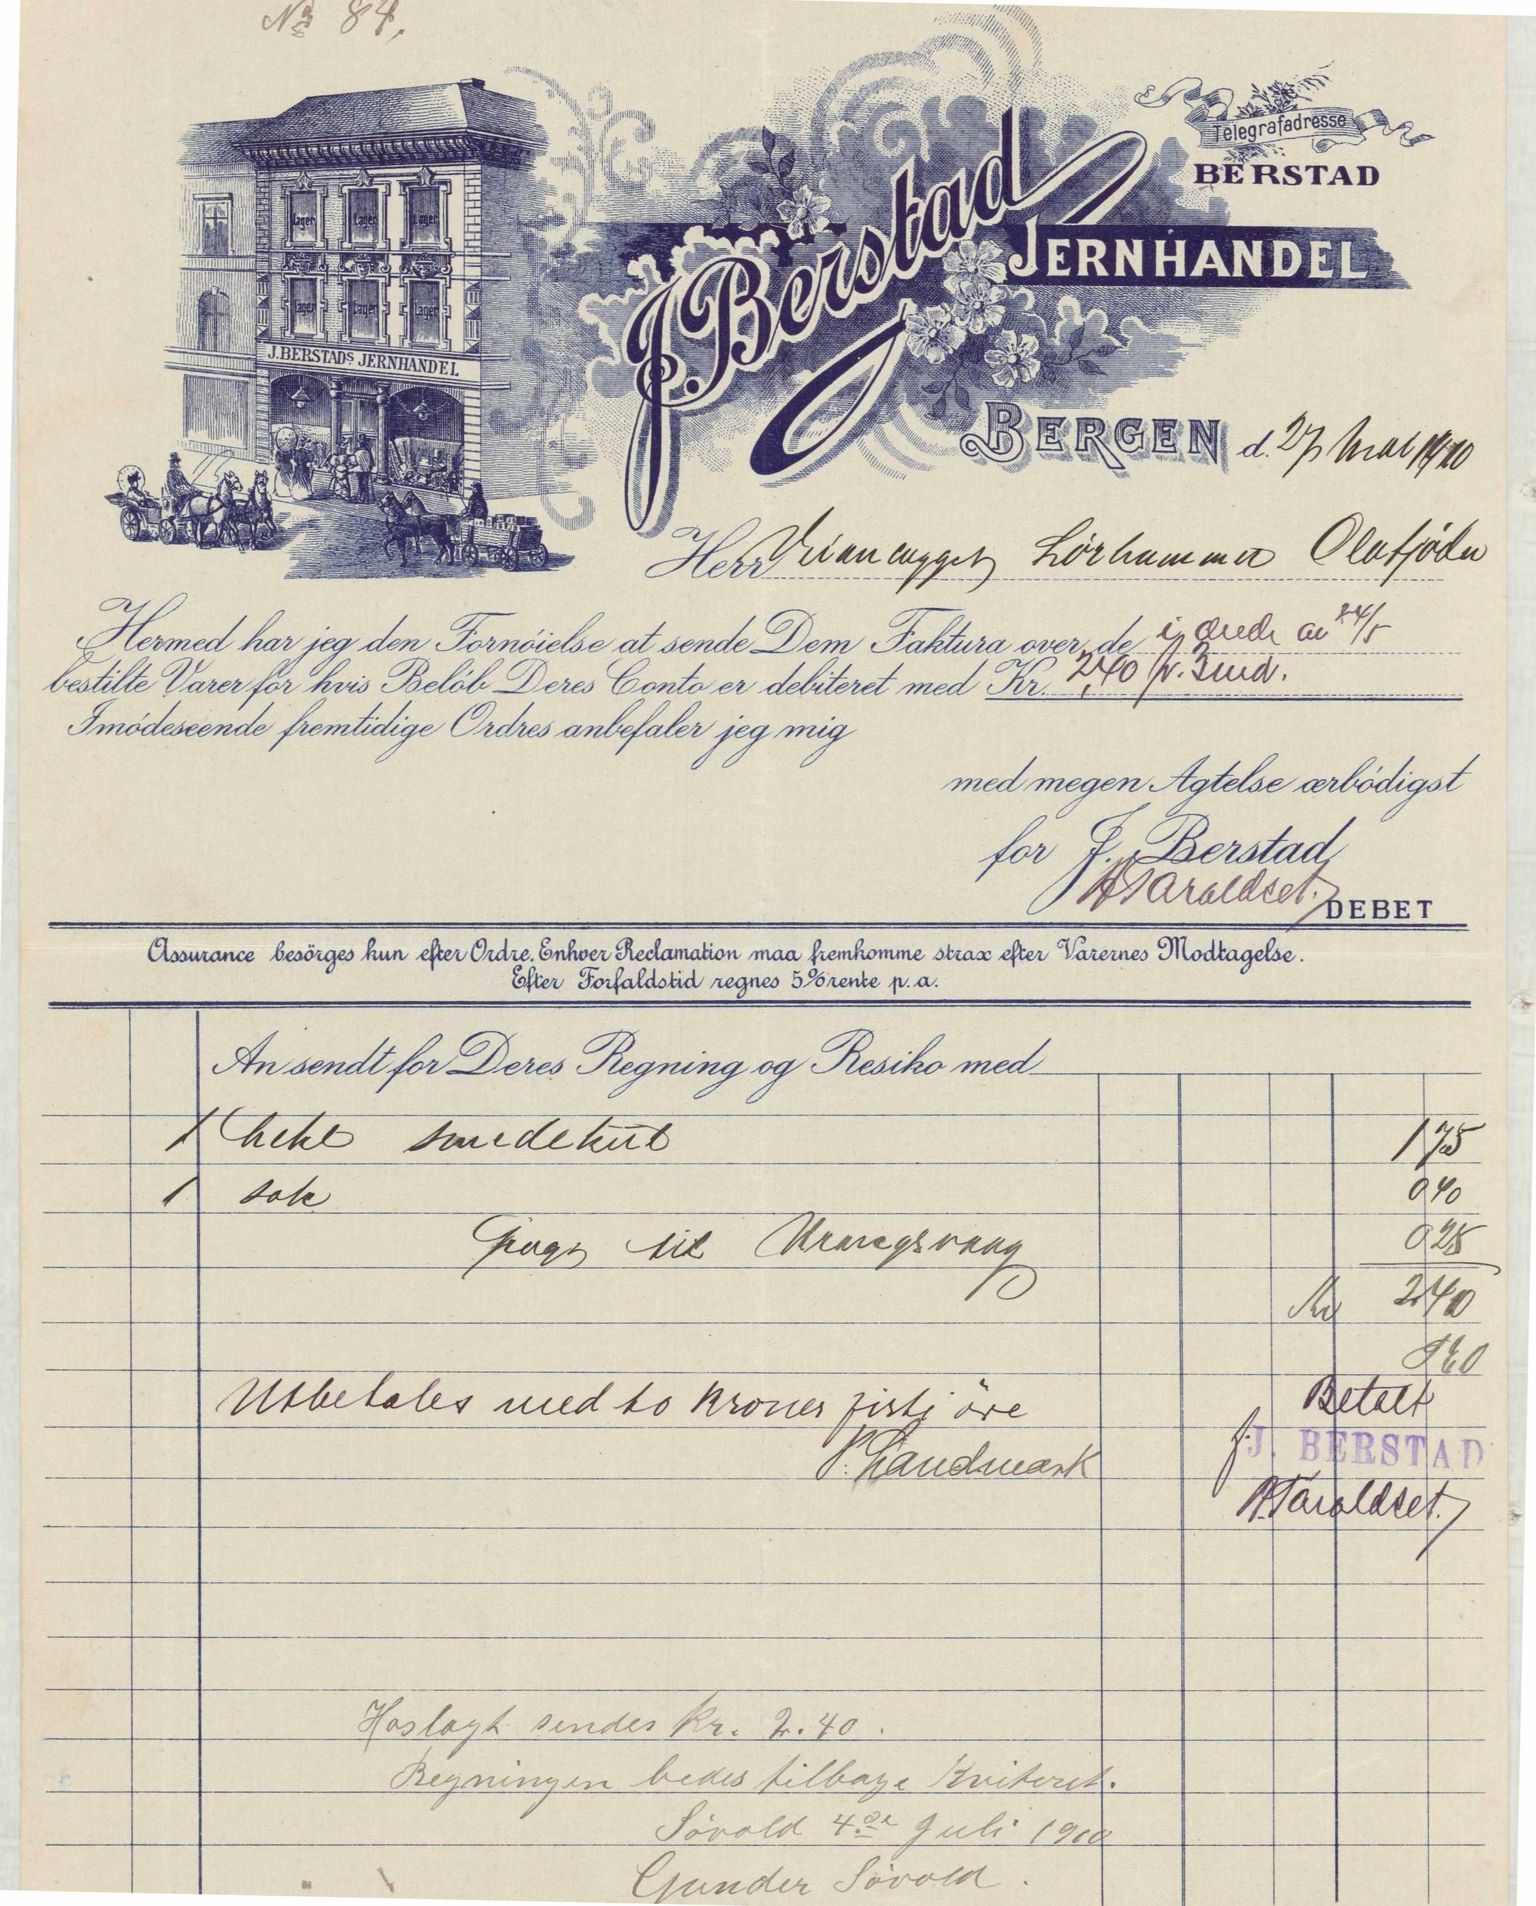 No 84.
Telegrafadresse
BERSTAD
J. Berstad
JERNHANDEL
Lager Lager Lager
Lager Lager Lager
J. BERSTADS JERNHANDEL
BERGEN d. 27 Mai 1910
Herr
Hermed har jeg den Fornöielse at sende Dem Faktura over de i ordr av 24/5
bestilte Varer for hvis Belöb Deres Conto er debiteret med Kr. 2,40 pr. 3 md.
Imödeseende fremtidige Ordres anbefaler jeg mig
med megen Agtelse ærbödigst
for J. Berstad
Taraldset.
DEBET
Assurance besörges kun efter Ordre. Enhver Reclamation maa fremkomme strax efter Varernes Modtagelse.
Efter Forfaldstid regnes 5% rente p.a.
An sendt for Deres Regning og Resiko med
1 hekt smedekul 1 75
1 sæk 0 40
til 0 25
Kr 2.40
Utbetales med to kroner firti öre
Landmark
Betalt
f. J. BERSTAD
Taraldset.
Hoslagt sendes kr. 2.40.
Regningen bedes tilbage kviteret.
Sövold 4de Juli 1910
Gunder Sövold.